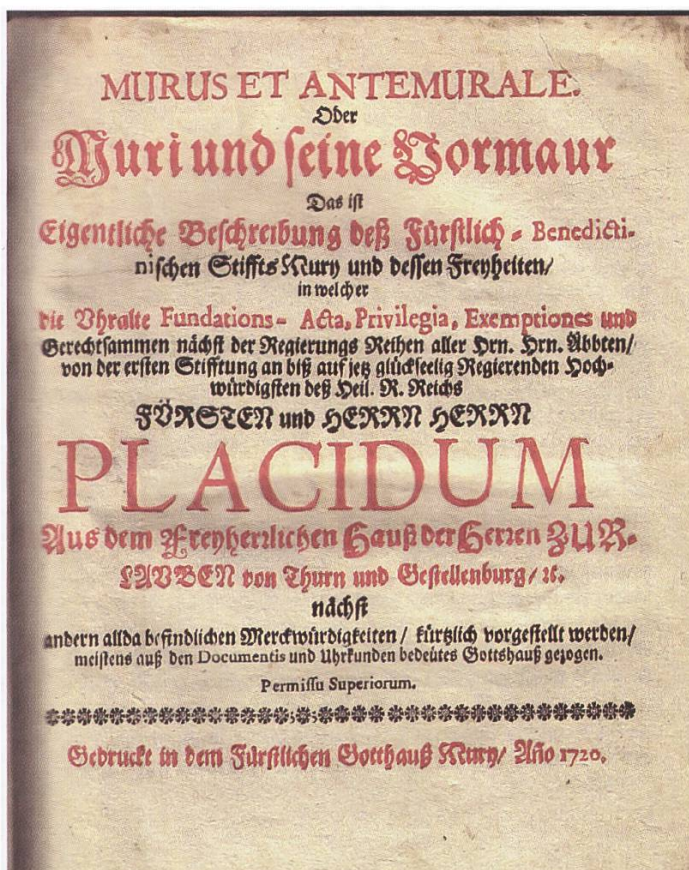 MURUS ET ANTEMURALE.
Oder
Muri und seine Vormaur
Das ist
Eigentliche Beschreibung deß Fürstlich - Benedicti-
nischen Stiffts Mury und dessen Freyheiten/
in welcher
die Vhralte Fundations- Acta, Privilegia, Exemptiones und
Gerechtsammen nächst der Regierungs Reihen aller Hrn. Hrn. Äbbten/
von der ersten Stifftung an biß auf jetz glückseelig Regierenden Hoch-
würdigsten deß Heil. R. Reichs
FÜRSTEN und HERRN HERRN
PLACIDUM
Aus dem Freyherrlichen Hauß der Herren ZUR-
LAUBEN von Thurn und Gestellenburg/ ꝛc.
nächst
andern allda befindlichen Merckwürdigkeiten / kürtzlich vorgestellt werden/
meistens auß den Documentis und Uhrkunden bedeutes Gottshauß gezogen.
Permissu Superiorum.
Gedruckt in dem Fürstlichen Gotthauß Mury/ Año 1720.